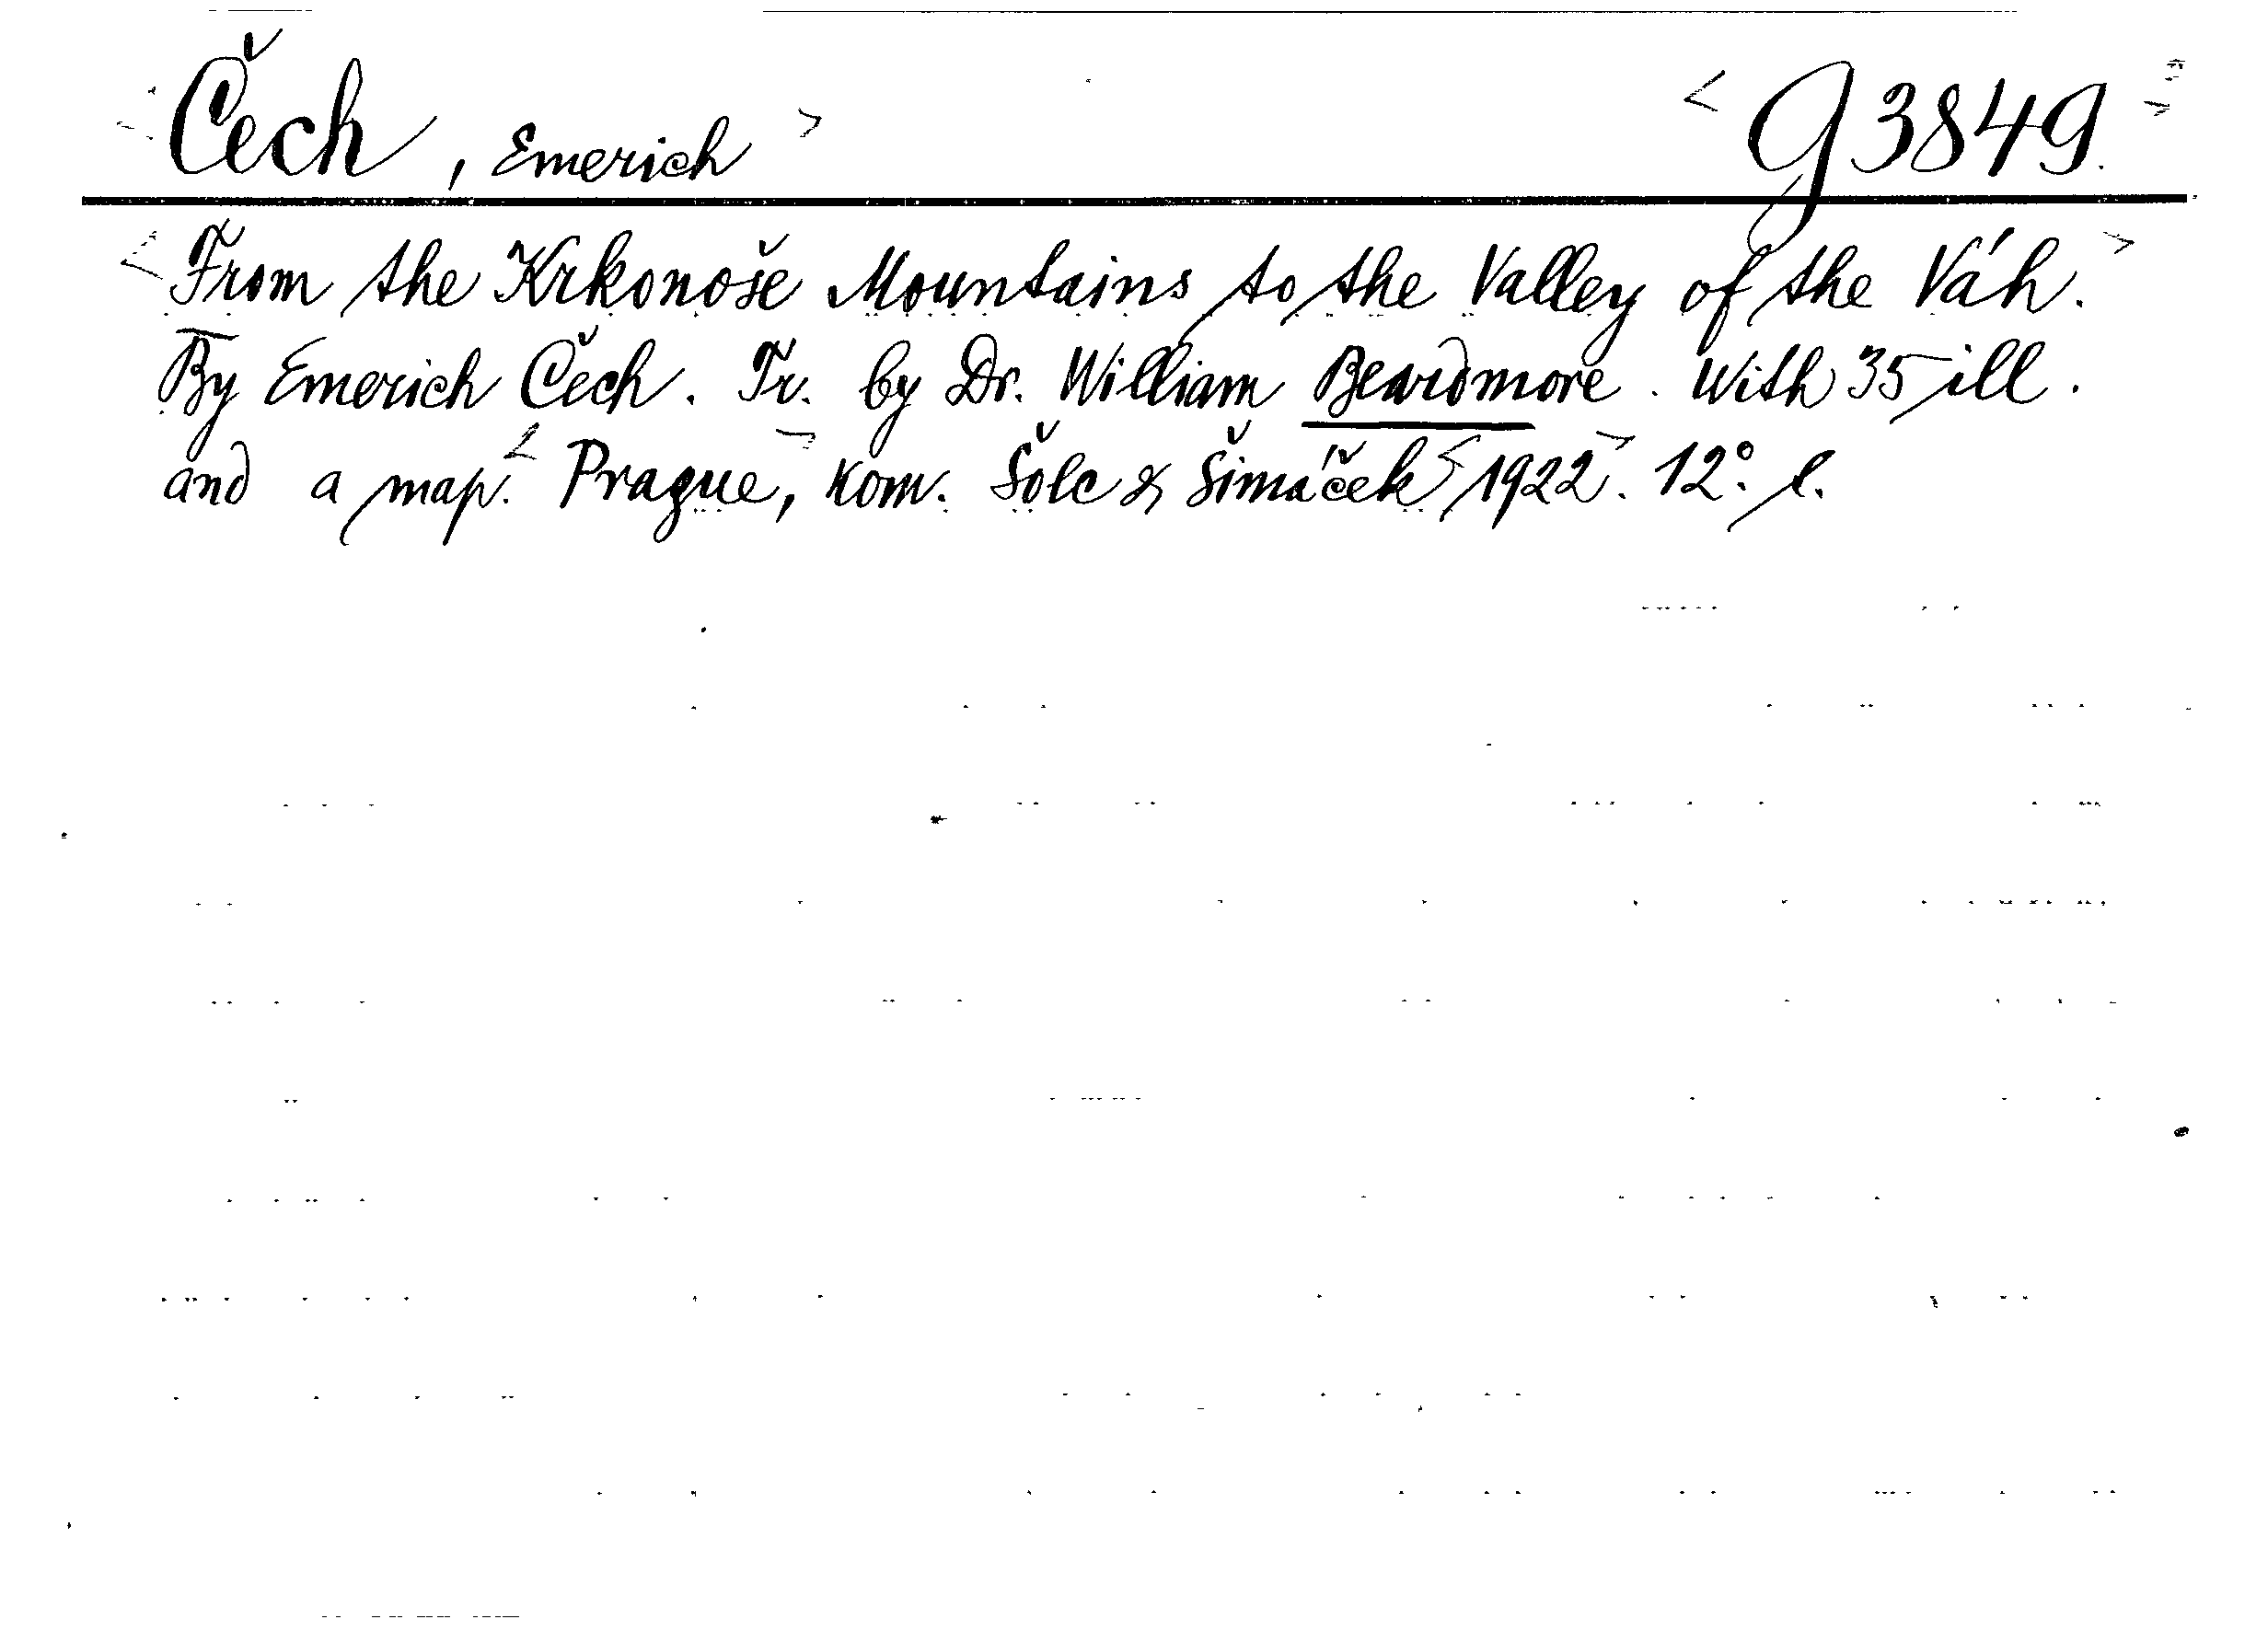 Čech, Emerich g 3849.
From the Krkonoše Mountains to the Valley of the Váh.
By Emerich Čech. Tr. by Dr. William Beardmore. With 35 ill.
and a map. Prague, kom. Šolc & Šimáček 1922. 12°. l.